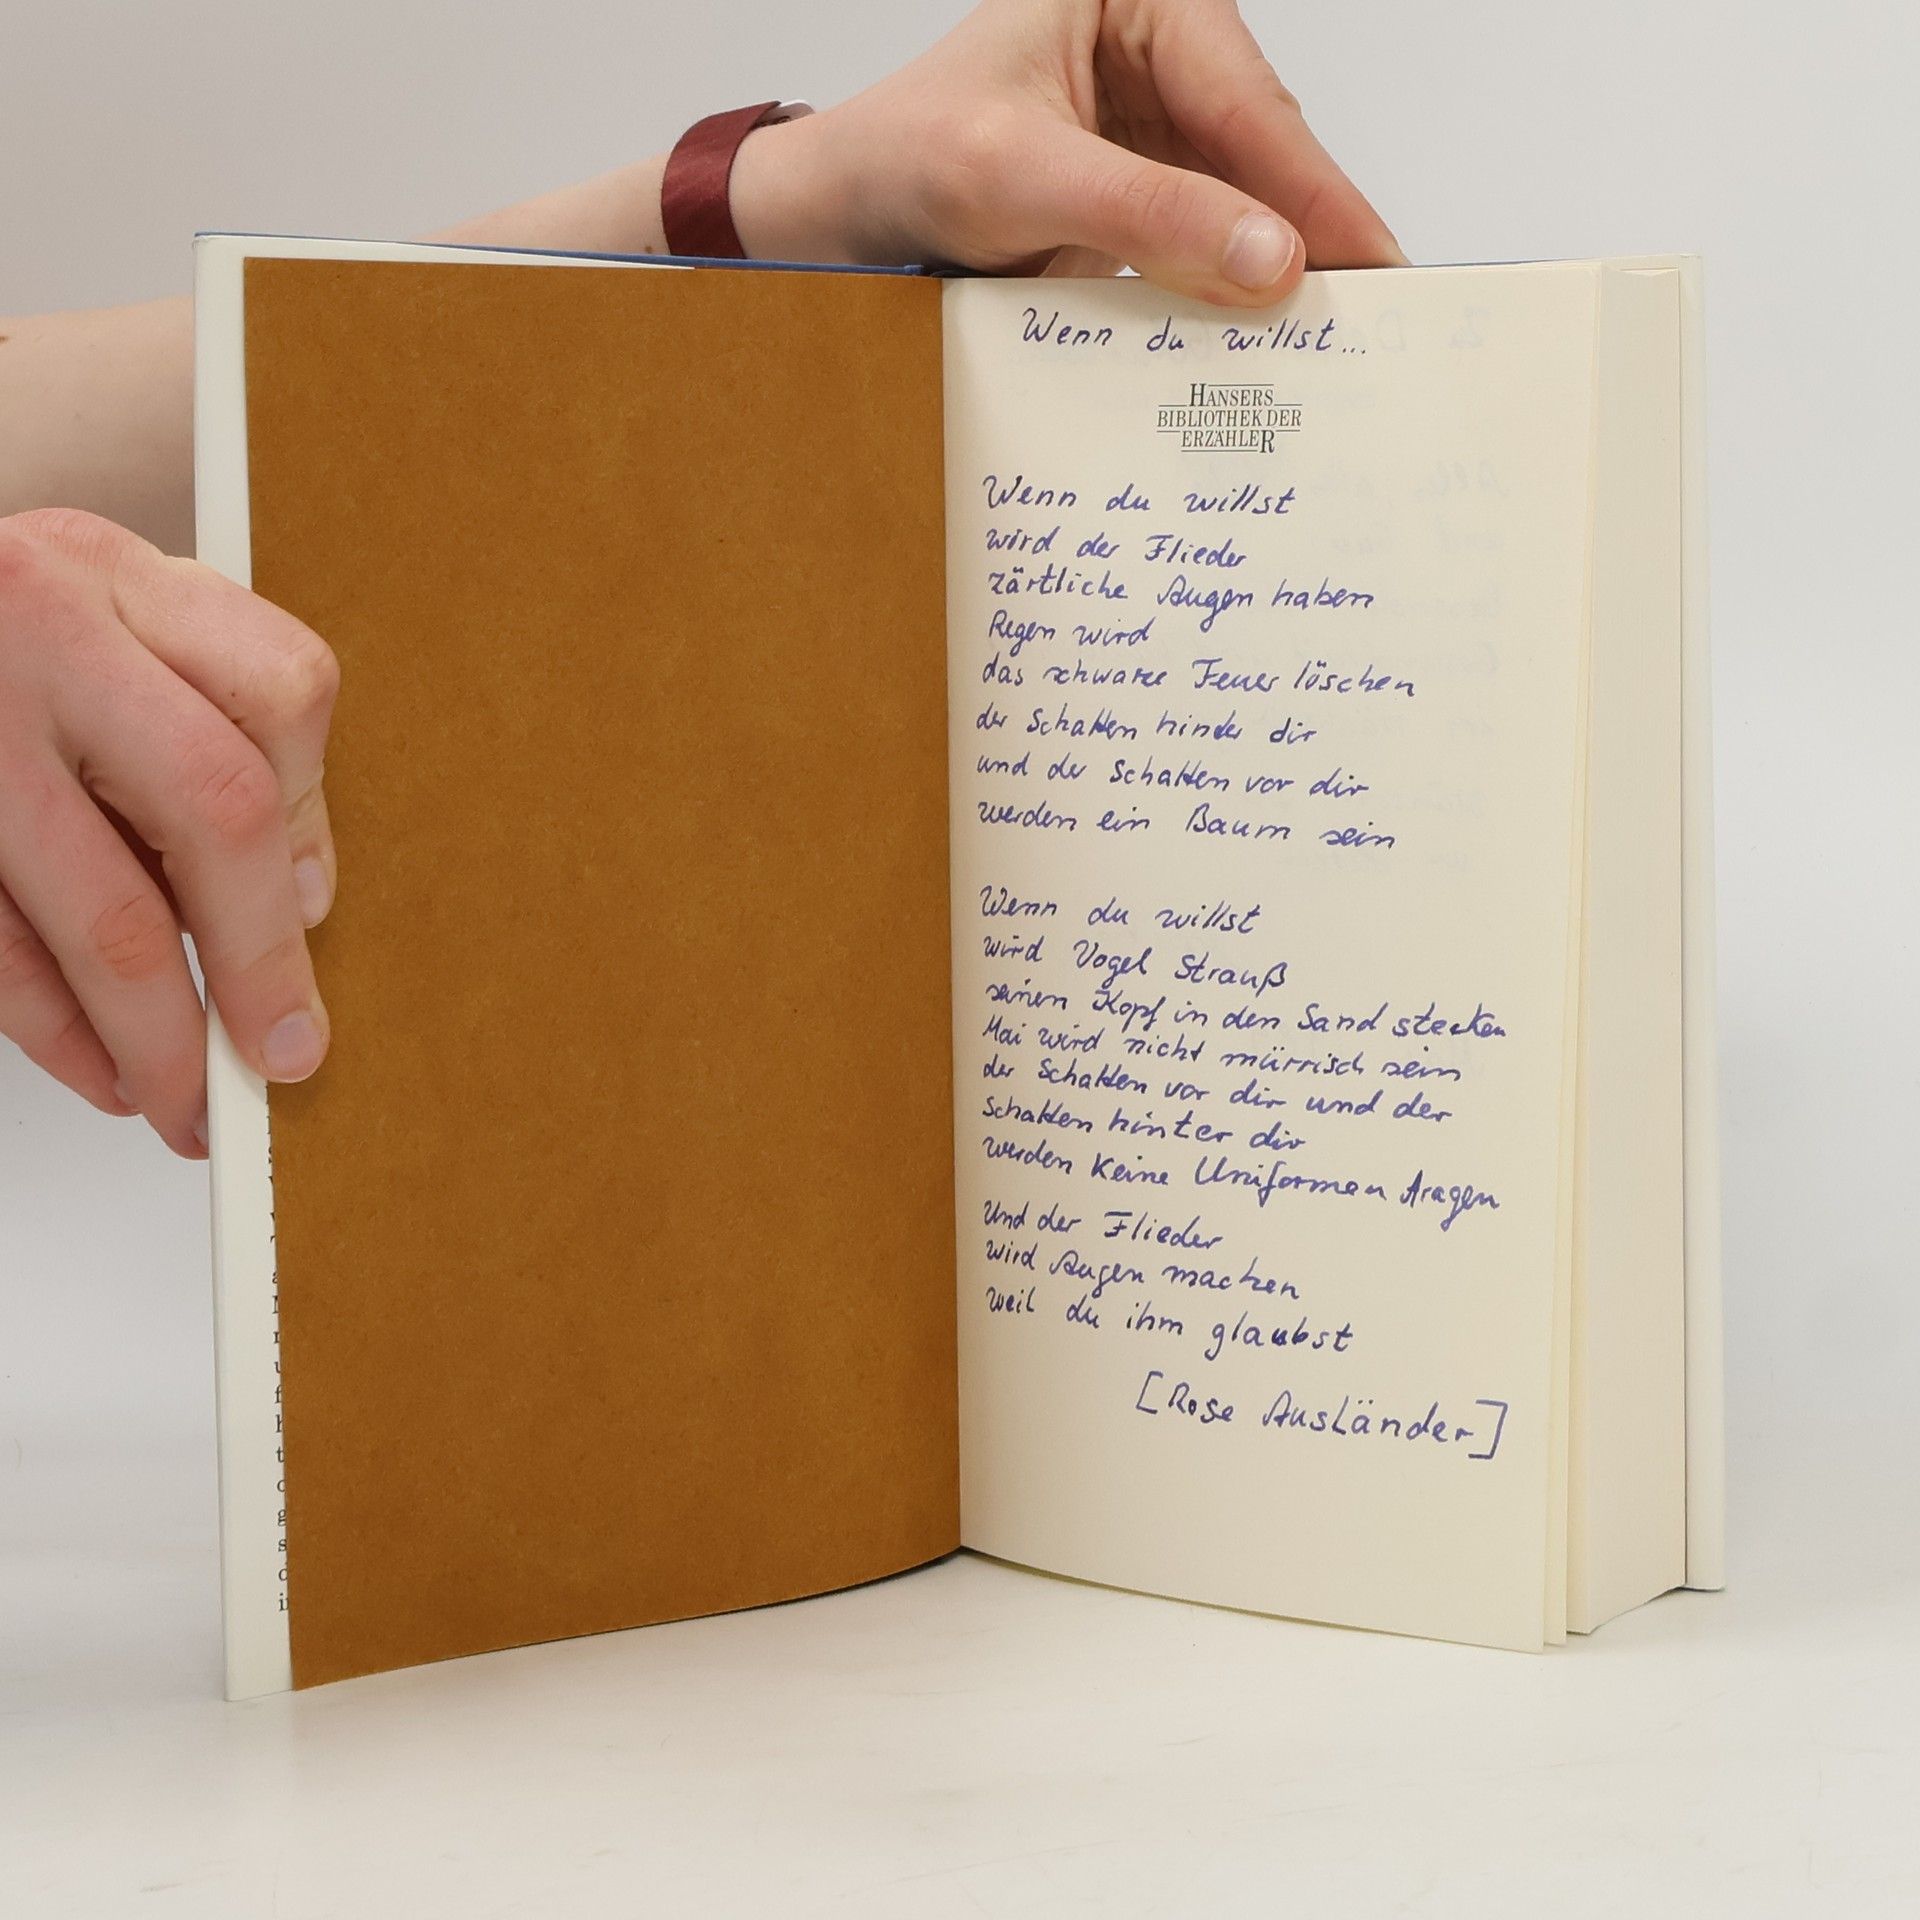 Wenn du willst...
HANSERS
BIBLIOTHEK DER
ERZÄHLER
Wenn du willst
wird der Flieder
zärtliche Augen haben
Regen wird
das schwarze Feuer löschen
der Schatten hinter dir
und der Schatten vor dir
werden ein Baum sein
Wenn du willst
wird Vogel Strauß
seinen Kopf in den Sand stecken
Mai wird nicht mürrisch sein
der Schatten vor dir und der
Schatten hinter dir
werden keine Uniformen tragen
Und der Flieder
wird Augen machen
weil du ihm glaubst
[Rose Ausländer]